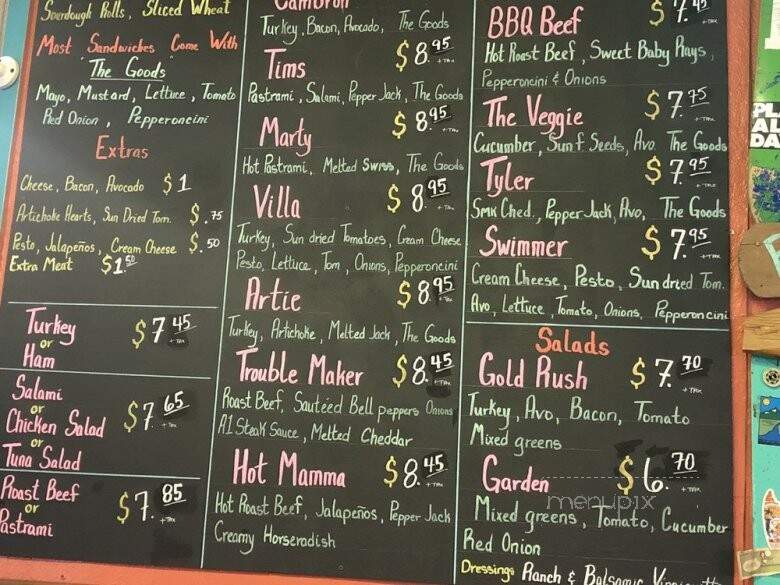 Sourdough Rolls, Sliced Wheat
Most Sandwiches Come With
"The Goods"
Mayo, Mustard, Lettuce, Tomato
Red Onion, Pepperoncini
Extras
Cheese, Bacon, Avocado $1
Artichoke Hearts, Sun Dried Tom. $.75
Pesto, Jalapeños, Cream Cheese $.50
Extra Meat $1.50
Turkey
or
Ham
$7.45
+TAX
Salami
or
Chicken Salad
or
Tuna Salad
$7.65
+TAX
Roast Beef
or
Pastrami
$7.85
+TAX
Cambron
Turkey, Bacon, Avocado, The Goods
Tims $8.95
+TAX
Pastrami, Salami, Pepper Jack, The Goods
Marty $8.95
+TAX
Hot Pastrami, Melted Swiss, The Goods
Villa $8.95
+TAX
Turkey, Sun dried Tomatoes, Cream Cheese
Pesto, Lettuce, Tom, Onions, Pepperoncini
Artie $8.95
+TAX
Turkey, Artichoke, Melted Jack, The Goods
Trouble Maker $8.45
+TAX
Roast Beef, Sautéed Bell peppers Onions
A1 Steak Sauce, Melted Cheddar
Hot Mamma $8.45
+TAX
Hot Roast Beef, Jalapeños, Pepper Jack
Creamy Horseradish
BBQ Beef $7.45
+TAX
Hot Roast Beef, Sweet Baby Rays,
Pepperoncini & Onions
The Veggie $7.75
+TAX
Cucumber, Sunf. Seeds, Avo The Goods
Tyler $7.95
+TAX
Smk Ched., Pepper Jack, Avo, The Goods
Swimmer $7.95
+TAX
Cream Cheese, Pesto, Sun dried Tom.
Avo, Lettuce, Tomato, Onions, Pepperoncini
Salads
Gold Rush $7.70
+TAX
Turkey, Avo, Bacon, Tomato
Mixed greens
Garden $6.70
+TAX
menupix
Mixed greens, Tomato, Cucumber
Red Onion
Dressings Ranch & Balsamic